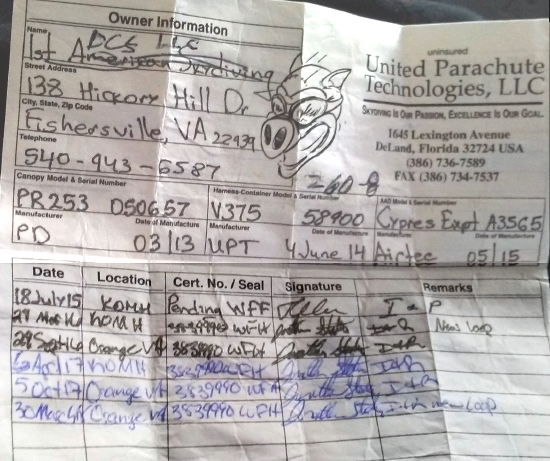 Owner Information
Name
DCS LLC
1st American Skydiving
Street Address
138 Hickory Hill Dr
City, State, Zip Code
Fishersville, VA 22939
Telephone
540-943-6587
uninsured
United Parachute
Technologies, LLC
SKYDIVING IS OUR PASSION, EXCELLENCE IS OUR GOAL.
1645 Lexington Avenue
DeLand, Florida 32724 USA
(386) 736-7589
FAX (386) 734-7537
260-8
Canopy Model & Serial Number
PR253 050657
Harness-Container Model & Serial Number
V375 58900
AAD Model & Serial Number
Cypres Expt A3565
Manufacturer Date of Manufacture
PD 03/13
Manufacturer Date of Manufacture
UPT 4 June 14
Manufacturer Date of Manufacture
Airtec 05/15
Date Location Cert. No. / Seal Signature Remarks
18 July 15 KOMH Pending WFF I & P
KOMH 3839990 WFH I&R New loop
Orange VA 3839990 WFH I&R
Apr 17 KOMH 3839990 WFH I&R
5 Oct 17 Orange VA 3839990 WFH I&R
30 Orange VA 3839990 WFH new loop